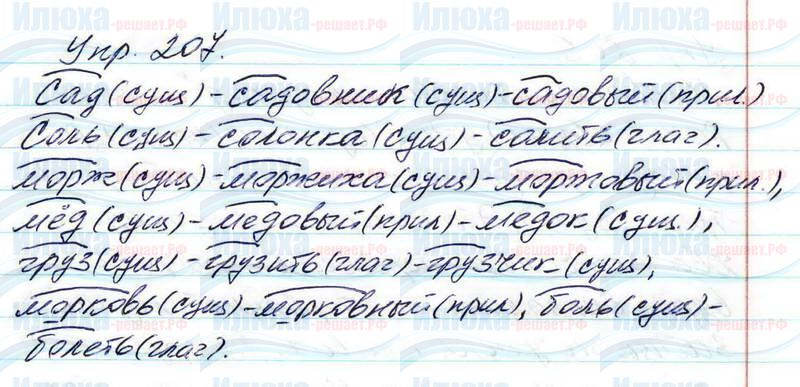 Упр. 207.
Сад (сущ) - садовник (сущ) - садовый (прил.)
Соль (сущ) - солонка (сущ) - солить (глаг).
морж (сущ) - моржиха (сущ) - моржовый (прил.),
мёд (сущ) - медовый (прил) - медок (сущ.),
груз (сущ) - грузить (глаг) - грузчик (сущ),
морковь (сущ) - морковный (прил), боль (сущ) -
болеть (глаг).